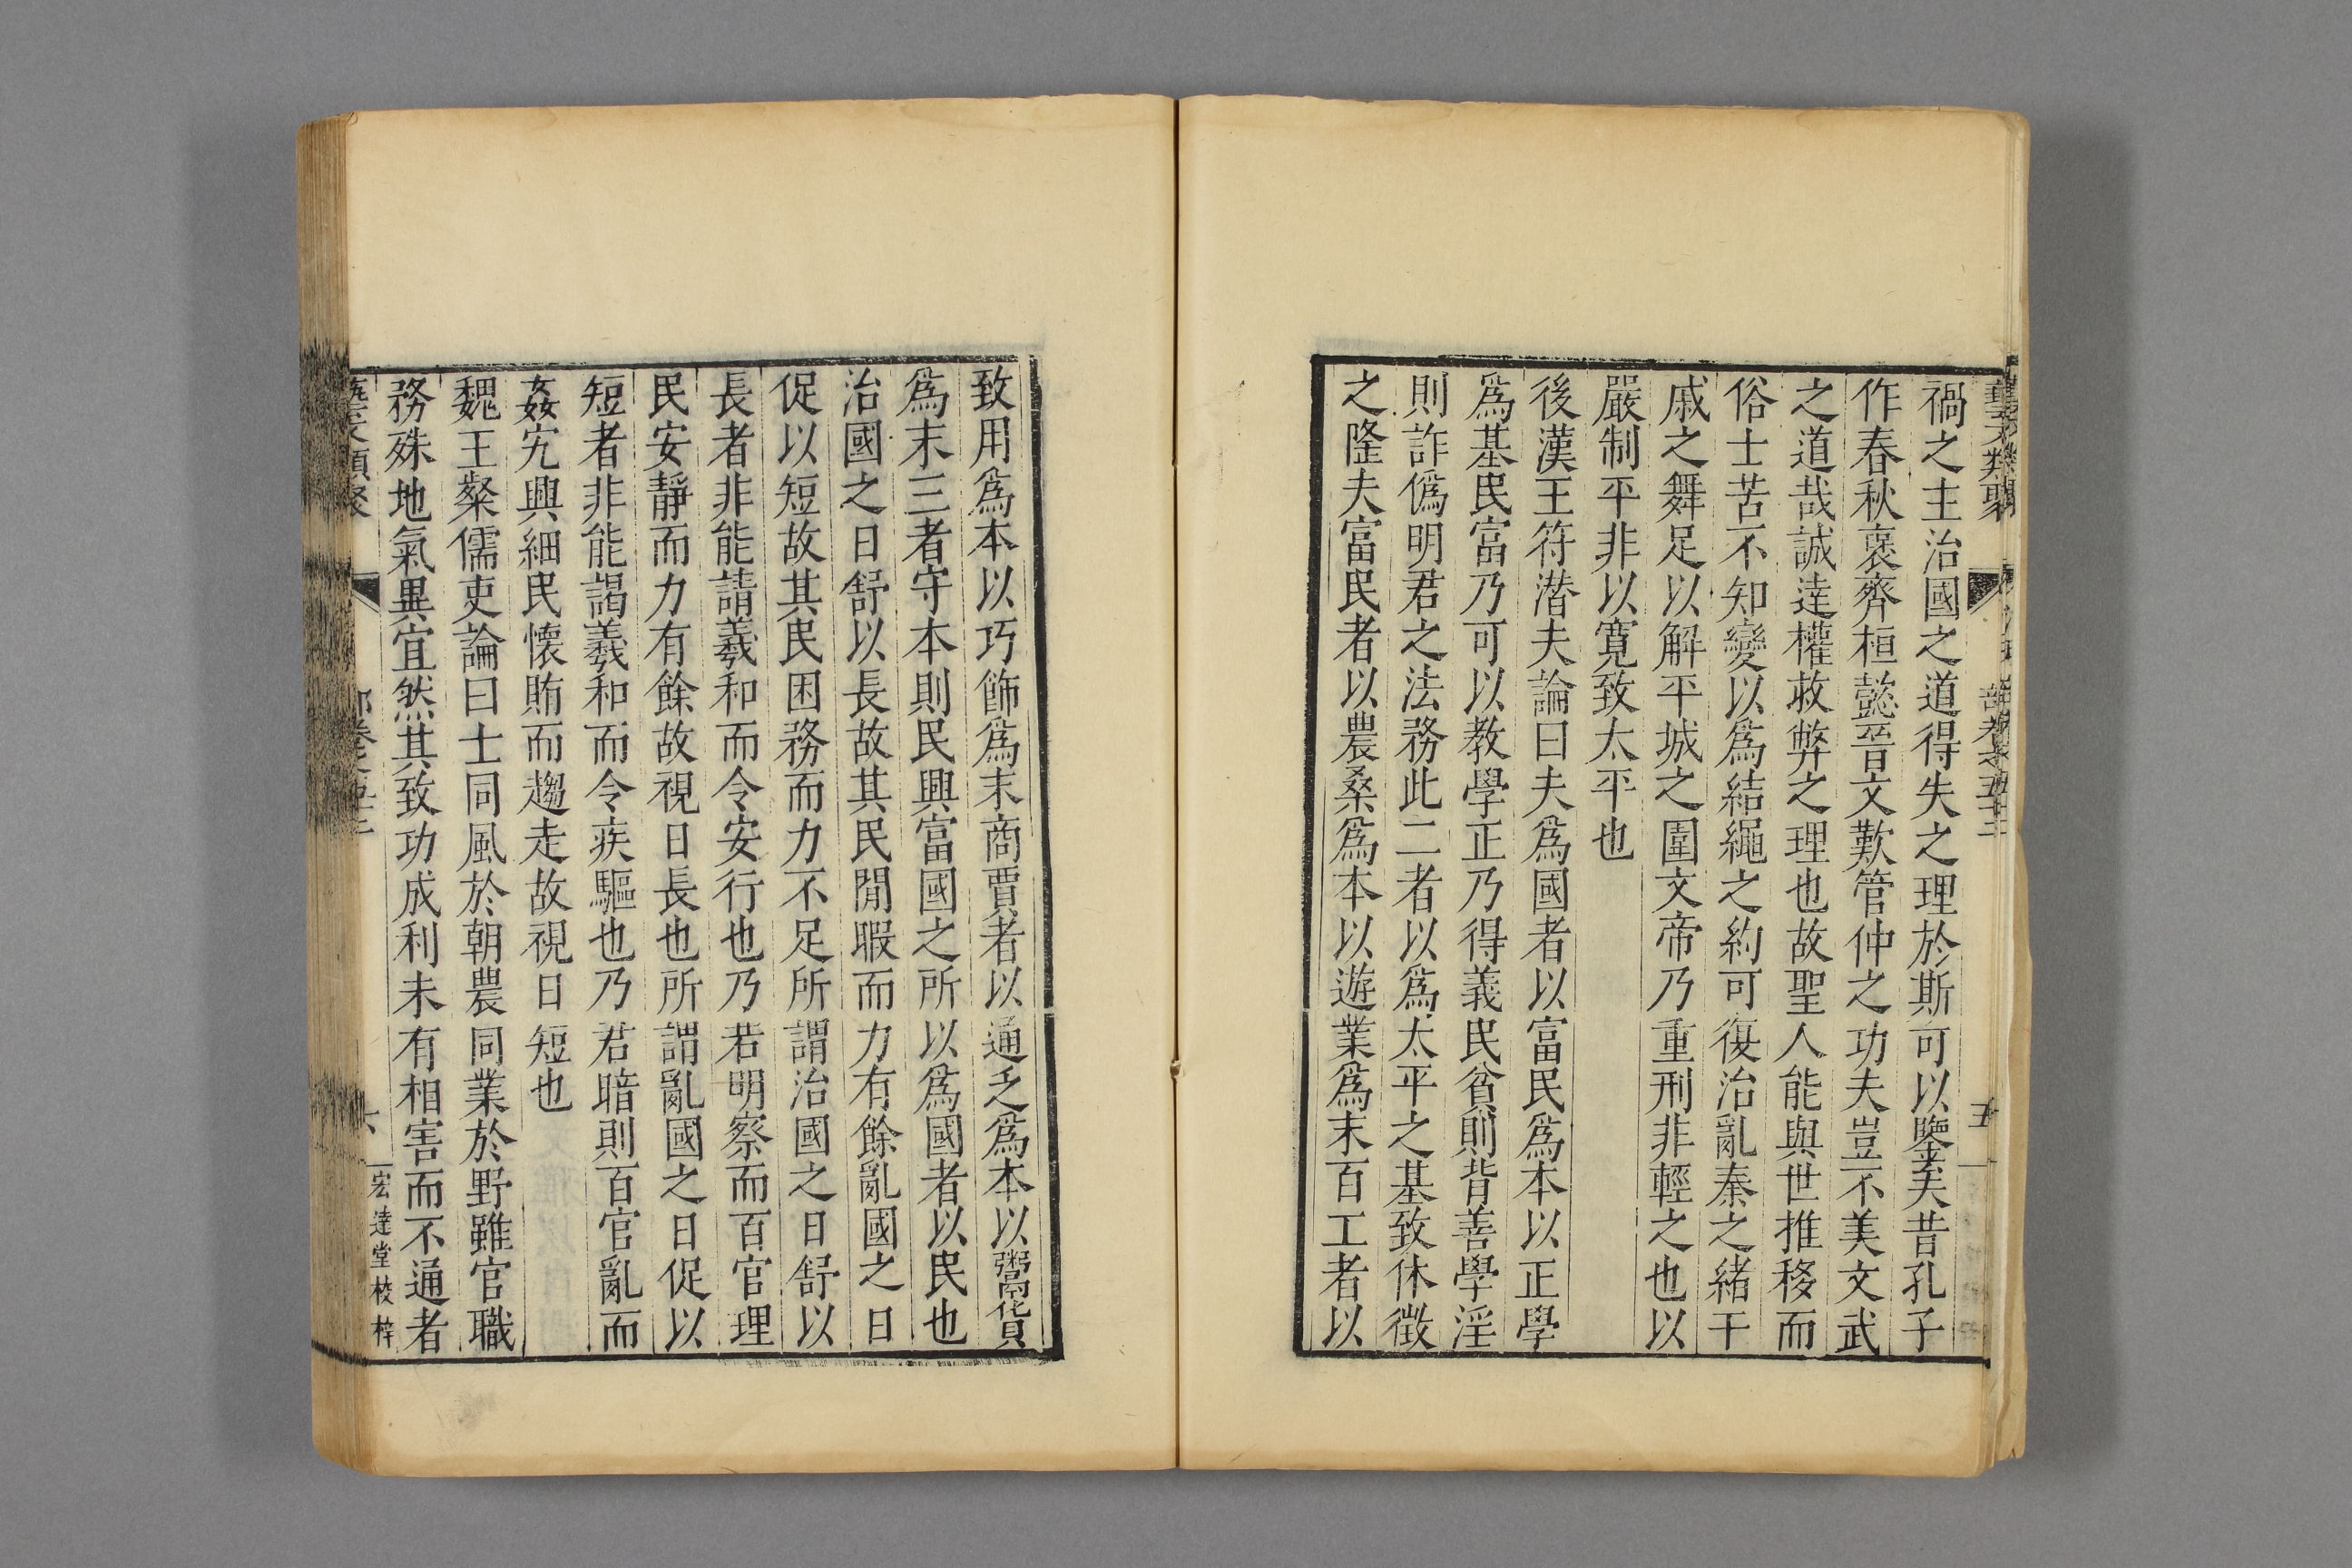 禍之主治國之道得失之理於斯可以鑒矣昔孔子
作春秋褒齊桓懿晉文歎管仲之功夫豈不美文武
之道哉誠達權救弊之理也故聖人能與世推移而
俗士苦不知變以為結繩之約可復治亂秦之緒干
戚之舞足以解平城之圍文帝乃重刑非輕之也以
嚴制平非以寬致太平也
後漢王符潛夫論曰夫為國者以富民為本以正學
為基民富乃可以教學正乃得義民貧則背善學淫
則詐偽明君之法務此二者以為太平之基致休徵
之隆夫富民者以農桑為本以遊業為末百工者以
五
致用為本以巧飾為末商賈者以通乏為本以鬻貨
為末三者守本則民興富國之所以為國者以民也
治國之日舒以長故其民閒暇而力有餘亂國之日
促以短故其民困務而力不足所謂治國之日舒以
長者非能請羲和而令安行也乃君明察而百官理
民安靜而力有餘故視日長也所謂亂國之日促以
短者非能謁羲和而令疾驅也乃君暗則百官亂而
姦宄興細民懷賄而趨走故視日短也
魏王粲儒吏論曰士同風於朝農同業於野雖官職
務殊地氣異宜然其致功成利未有相害而不通者
六
宏達堂校梓